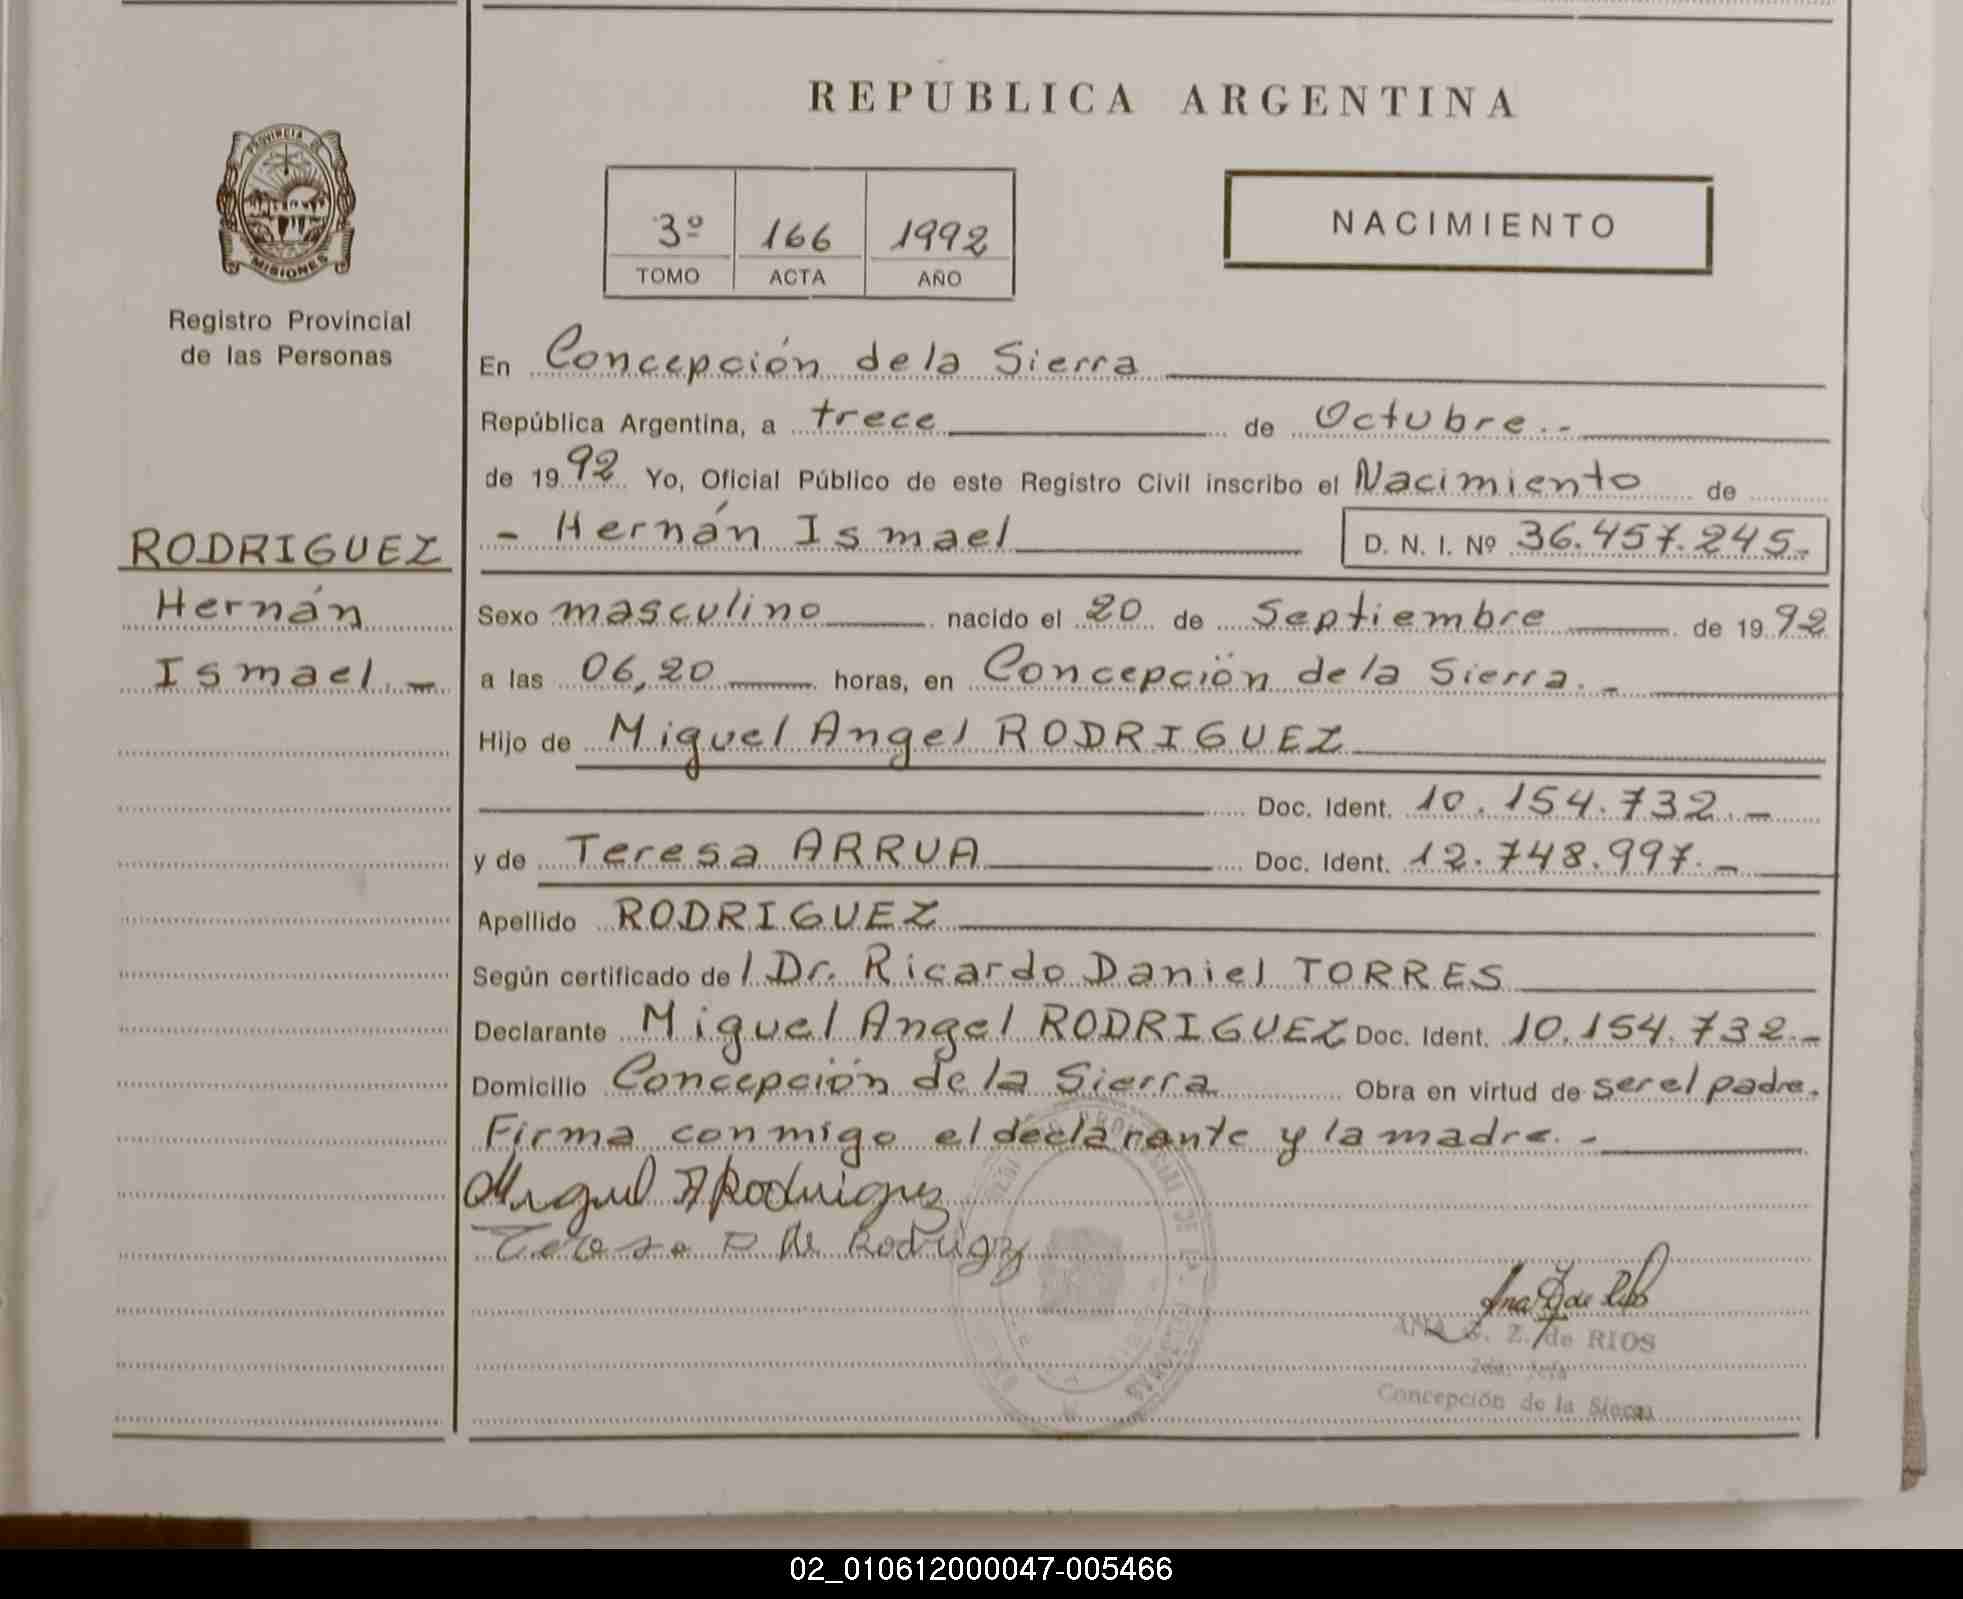 REPUBLICA ARGENTINA
PROVINCIA DE
MISIONES
Registro Provincial
de las Personas
3º 166 1992
TOMO ACTA AÑO
NACIMIENTO
En Concepción de la Sierra
República Argentina, a trece de Octubre.-
de 1992 Yo, Oficial Público de este Registro Civil inscribo el Nacimiento de
- Hernán Ismael D. N. I. Nº 36.457.245.-
RODRIGUEZ
Hernán
Ismael.-
Sexo masculino nacido el 20 de Septiembre de 1992
a las 06,20 horas, en Concepción de la Sierra.-
Hijo de Miguel Angel RODRIGUEZ
Doc. Ident. 10.154.732.-
y de Teresa ARRUA Doc. Ident. 12.748.997.-
Apellido RODRIGUEZ
Según certificado del Dr. Ricardo Daniel TORRES
Declarante Miguel Angel RODRIGUEZ Doc. Ident. 10.154.732.-
Domicilio Concepción de la Sierra Obra en virtud de ser el padre.
Firma conmigo el declarante y la madre.-
Miguel A Rodriguez
de Rodrigz
Ana de
ANA Z. de RIOS
Concepción de la Sierra
02_010612000047-005466